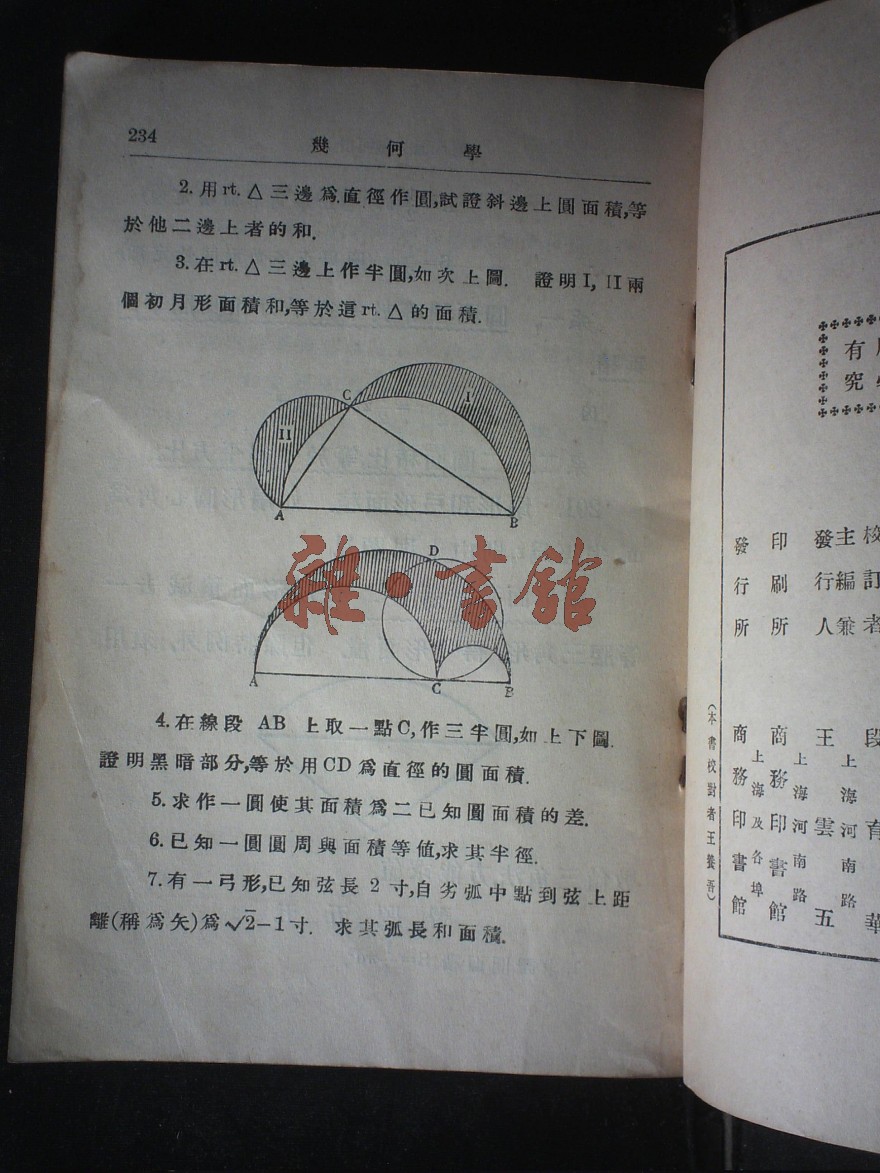 234
幾何學
2. 用rt. △三邊爲直徑作圓,試證斜邊上圓面積,等
於他二邊上者的和.
3. 在rt. △三邊上作半圓,如次上圖. 證明I, II兩
個初月形面積和,等於這rt. △的面積.
C
I
II
A
B
D
A
C
B
雜·書館
4. 在線段 AB 上取一點C,作三半圓,如上下圖.
證明黑暗部分,等於用CD爲直徑的圓面積.
5. 求作一圓使其面積爲二已知圓面積的差.
6. 已知一圓圓周與面積等値,求其半徑.
7. 有一弓形,已知弦長2寸,自劣弧中點到弦上距
離(稱爲矢)爲√2−1寸. 求其弧長和面積.
有
究
校訂者 段育華
主編兼
發行人 王雲五
上海河南路
印刷所 商務印書館
上海河南路
發行所 商務印書館
上海及各埠
(本書校對者王養吾)